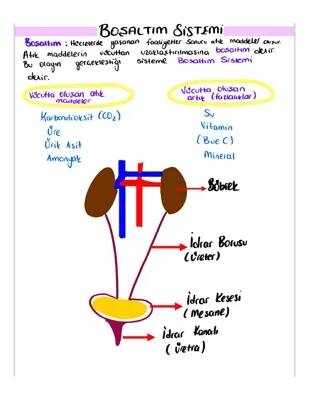 BOŞALTIM SİSTEMİ
Boşaltım : Hücrelerde yaşanan faaliyetler sonucu atık maddeler oluşur.
Atık maddelerin vücuttan uzaklaştırılmasına boşaltım denir.
Bu olayın gerçekleştiği sisteme Boşaltım Sistemi
denir.
Vücutta oluşan atık
maddeler
Karbondioksit (CO₂)
Üre
Ürik Asit
Amonyak
Vücutta oluşan
artık (fazlalıklar)
Su
Vitamin
(B ve C)
Mineral
Böbrek
İdrar Borusu
(Üreter)
İdrar Kesesi
(Mesane)
İdrar Kanalı
(Üretra)